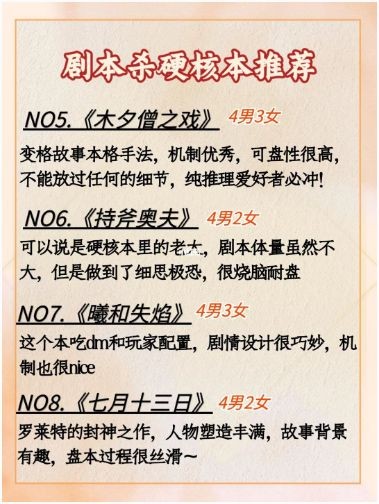 剧本杀硬核本推荐
NO5.《木夕僧之戏》 4男3女
变格故事本格手法，机制优秀，可盘性很高，
不能放过任何的细节，纯推理爱好者必冲！
NO6.《持斧奥夫》 4男2女
可以说是硬核本里的老大，剧本体量虽然不
大，但是做到了细思极恐，很烧脑耐盘
NO7.《曦和失焰》 4男3女
这个本吃dm和玩家配置，剧情设计很巧妙，机
制也很nice
NO8.《七月十三日》 4男2女
罗莱特的封神之作，人物塑造丰满，故事背景
有趣，盘本过程很丝滑～